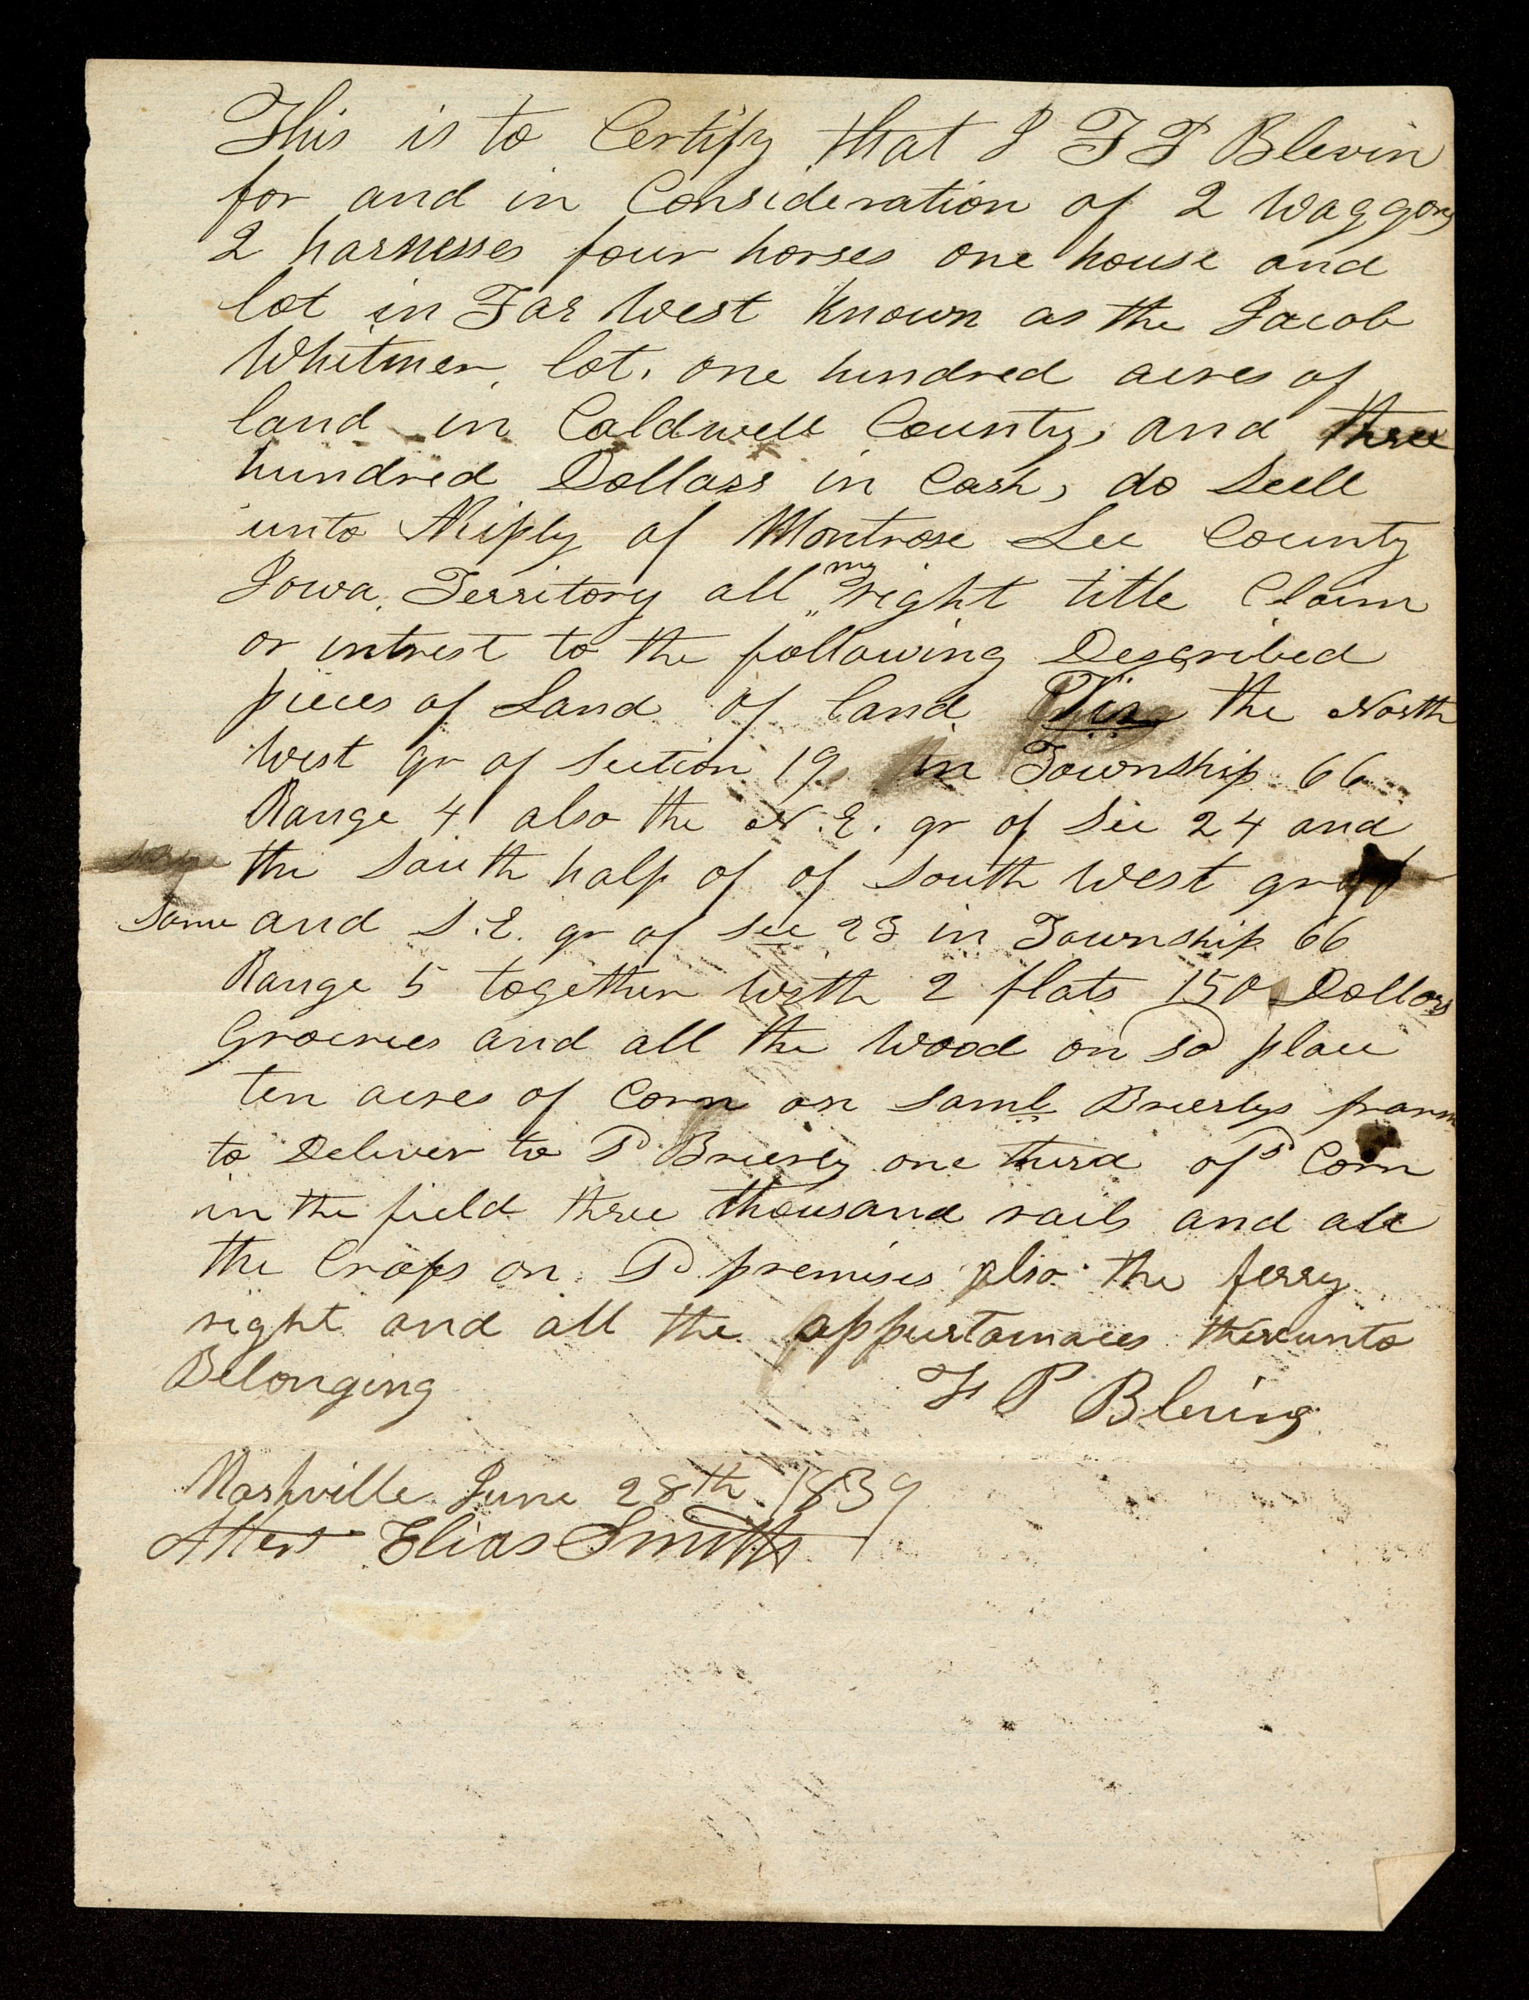 This is to Certify that I F P Blevin
for and in Consideration of 2 Waggons
2 harnesses four horses one house and
lot in Far West known as the Jacob
Whitmer lot. one hundred acres of
land in Caldwell County, and three
hundred Dollars in Cash, do Sell
unto Ripley of Montrose Lee County
Iowa, Territory all my right title Claim
or intrest to the following Described
pieces of Land of land Viz the North
West qr of Section 19 in Township 66
Range 4 also the N. E. qr of Sec 24 and
the South half of of South West qr of
Same and S. E. qr of Sec 23 in Township 66
Range 5 together with 2 flats 150 Dollars
Groceries and all the Wood on sd place
ten acres of Corn on Saml Brierlys farm
to Deliver to Sd Brierly one third of sd Corn
in the field three thousand rails and all
the Crops on Sd premises also the ferry
right and all the appurtainaces thereunto
Belonging
F P Blevins
Nashville June 28th 1839
Attest Elias Smith